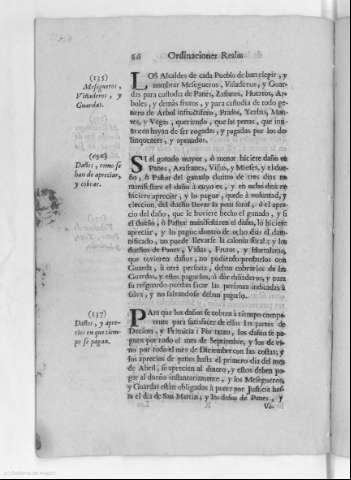 86 Ordinaciones Reales
(135)
Mesegueros,
Viñaderos, y
Guardas.
LOS Alcaldes de cada Pueblo de han elegir, y
nombrar Mesegueros, Viñaderos, y Guar-
das para custodia de Panes, Zafranes, Huertos, Ar-
boles, y demás frutos, y para custodia de todo ge-
nero de Arbol infructifero, Prados, Yerbas, Mon-
tes, y Vegas, queriendo, que las penas, que im-
usieren hayan de ser pagadas por los de-
linquentes, y apenados.
(136)
Daños, como se
han de apreciar,
y cobrar.
SI el ganado mayor, ò menor hiciere daño en
Panes, Azafranes, Viñas, y Mieses, y el due-
ño, ò Pastor del ganado dentro de tres dias no
manifestare el daño à cuyo es, y en ocho dias no
hiciere apreciar, y lo pague, quede à voluntad, y
eleccion del dueño llevar la pena foral, ò el apre-
cio del daño, que le huviere hecho el ganado, y si
el dueño, ò Pastor manifestare el daño, lo hiciere
apreciar, y lo pague dentro de ocho dias el dam-
nificado, no puede llevarse la calonia foral: y los
dueños de Panes, Viñas, Frutos, y Hortalizas,
que tuvieren daños, no pudiendo probarlos con
Guarda, ò otra persona, deban cobrarlos de los
Guardas, y estos pagarlos, ò dàr dañadores, y para
su resguardo puedan sacar las personas indiciadas à
salva, y no salvandose deban pagarlo.
(137)
Daños, y apre-
cios en que tiem-
po se pagan.
PAra que los daños se cobren à tiempo compe-
tente para satisfacer de ellos las partes de
Decima, y Primicia: Por tanto, los daños se pa-
guen por todo el mes de Septiembre, y los de vi-
no por todo el mes de Diciembre con las costas; y
los aprecios de panes hasta el primero dia del mes
de Abril, se aprecien al dinero, y estos deben pa-
gar al dueño instantaneamente, y los Mesegueros,
y Guardas estèn obligados à parar por Justicia has-
ta el dia de San Martin; y los daños de Panes, y
Vi-